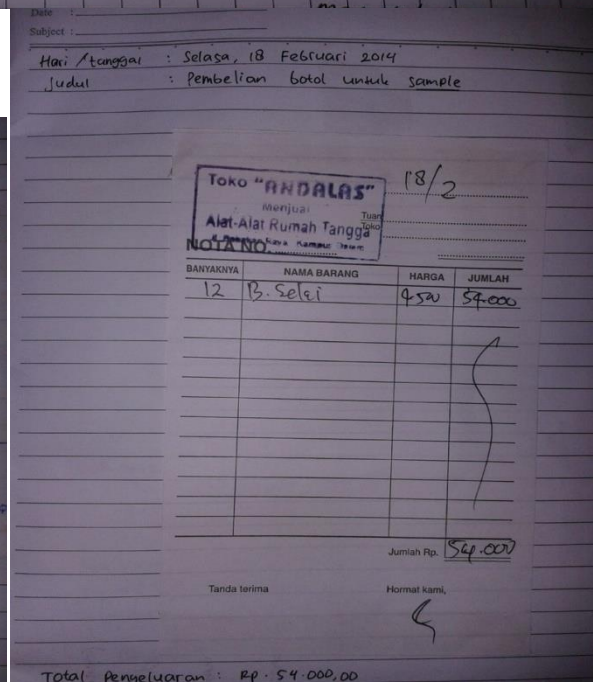 Date :
Subject :
Hari / tanggal : Selasa, 18 Februari 2014
Judul : Pembelian botol untuk sample
Toko "ANDALAS"
Menjual
Alat-Alat Rumah Tangga
18/2
Tuan
Toko
NOTA NO.
BANYAKNYA NAMA BARANG HARGA JUMLAH
12 B. Selai 4500 54.000
Jumlah Rp. 54.000
Tanda terima Hormat kami,
Total Pengeluaran : Rp. 54.000,00